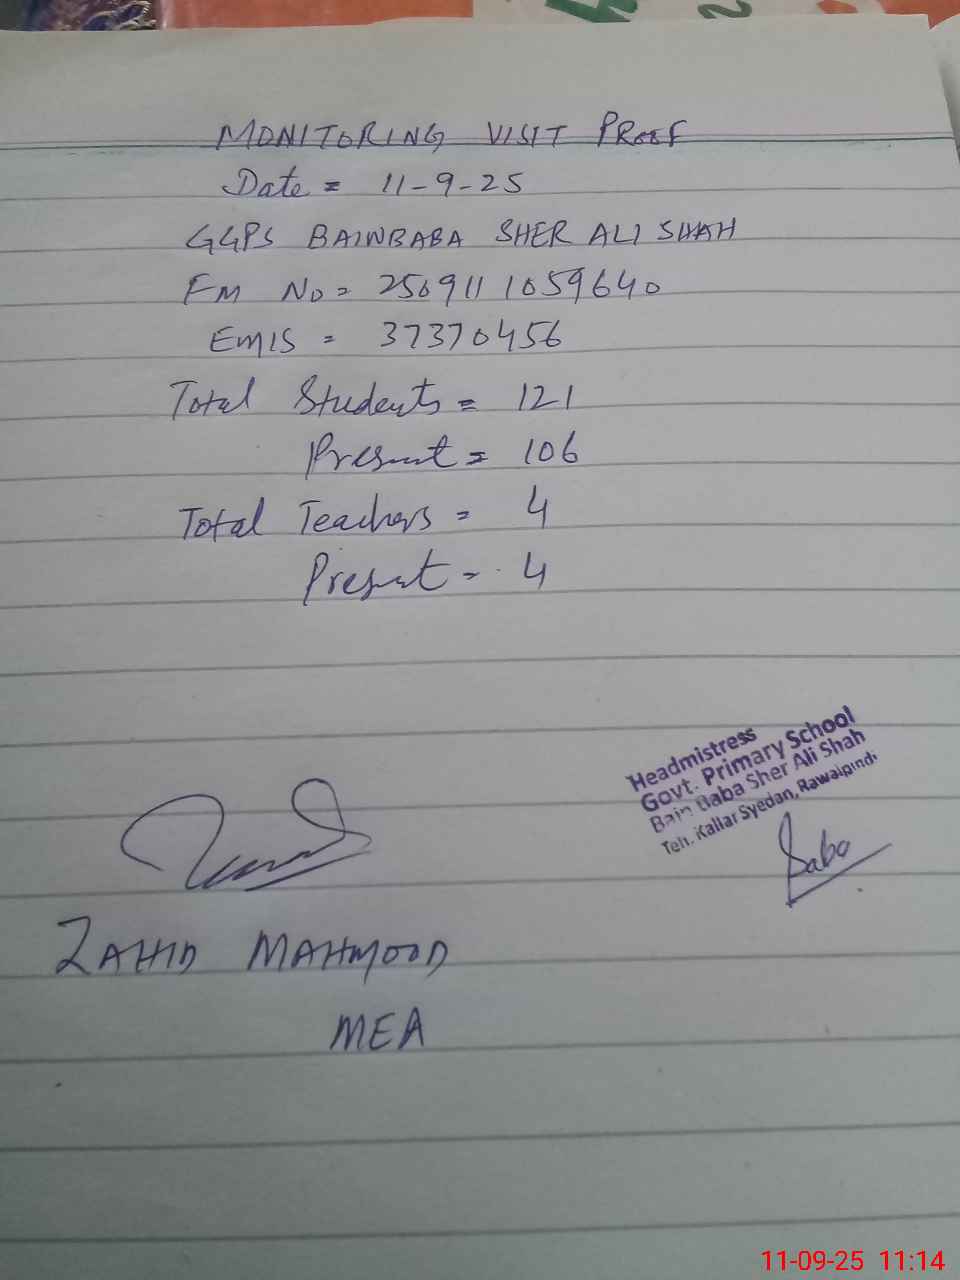 MONITORING VISIT PROOF
Date = 11-9-25
GGPS BAINBABA SHER ALI SHAH
FM No = 2509111059640
EMIS = 37370456
Total Students = 121
Present = 106
Total Teachers = 4
Present = 4
Headmistress
Govt. Primary School
Bain Baba Sher Ali Shah
Teh. Kallar Syedan, Rawalpindi
Saba
ZAHID MAHMOOD
MEA
11-09-25 11:14